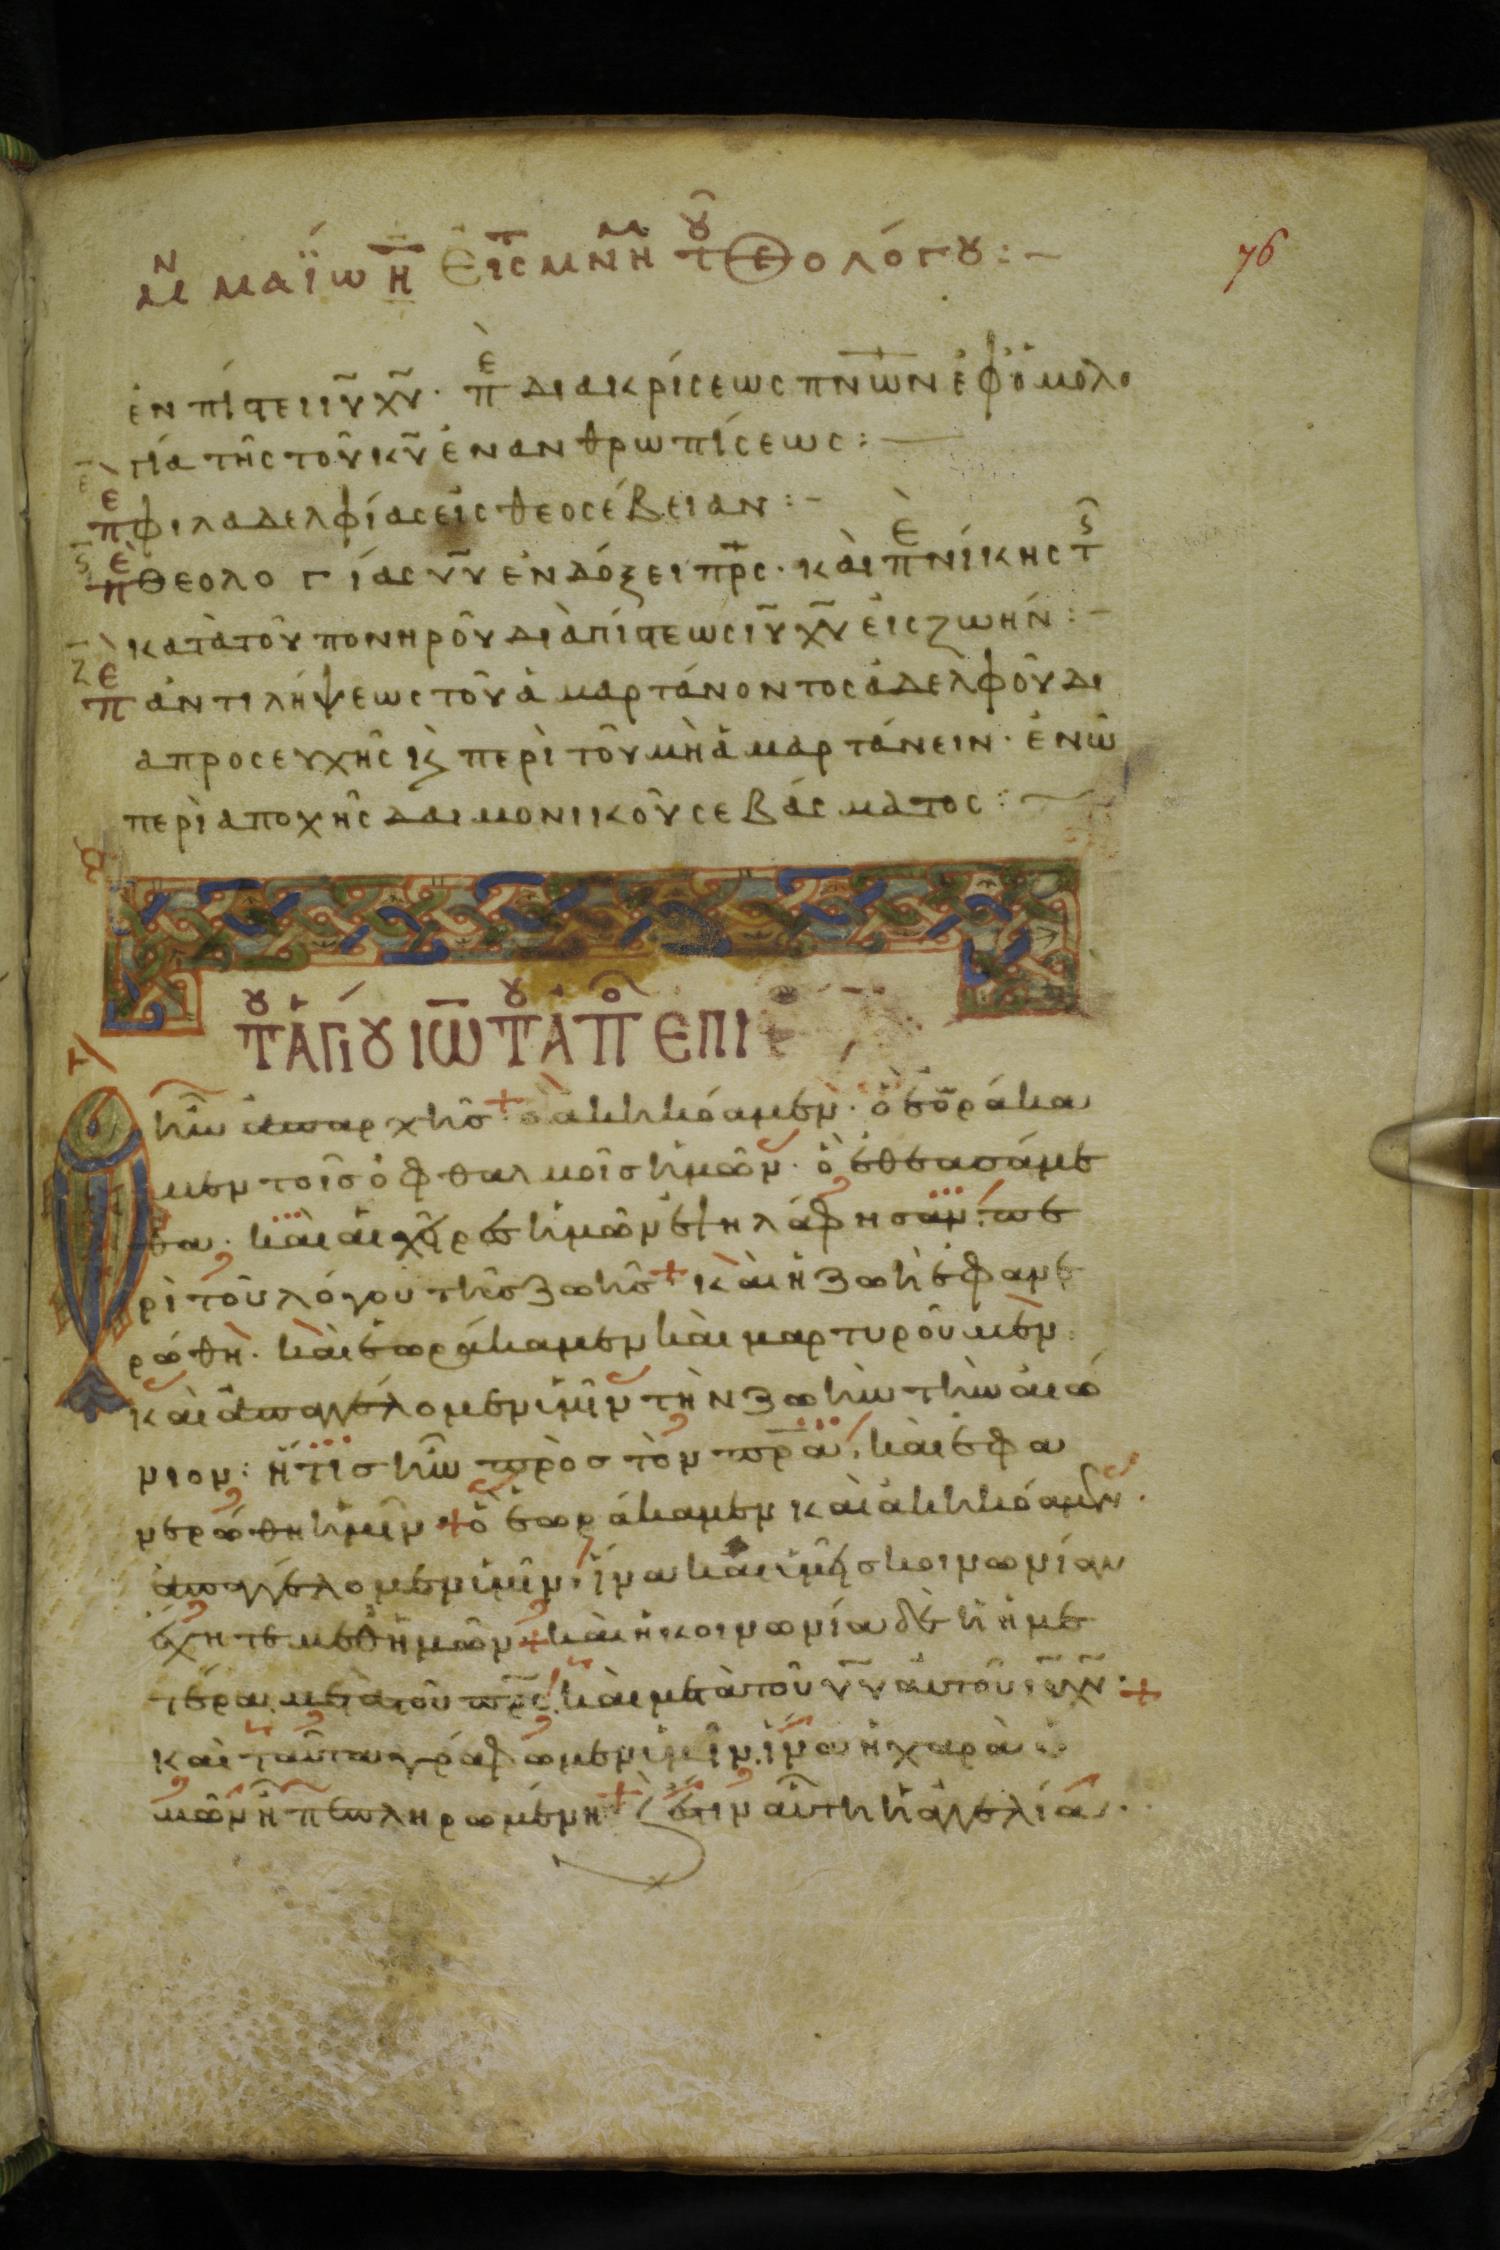 μν μαΐω η εις μνημ του θεολόγου :-
76
ἐν πίστει ιυ χυ · πε διακρίσεως πνων ἐφ ὁμολο
γία τῆς τοῦ κυ ἐνανθρωπίσεως :-
ε πε φιλαδελφίας εἰς θεοσέβειαν :-
ϛ πε θεολογίας υυ ἐν δόξει πρς · καὶ πε νίκης τς
κατὰ τοῦ πονηροῦ διὰ πίστεως ιυ χυ εἰς ζωήν :-
ζ πε ἀντιλήψεως τοῦ ἁμαρτάνοντος ἀδελφοῦ δι
α προσευχῆς κς περὶ τοῦ μὴ ἁμαρτάνειν · ἐν ὧ
περὶ αποχῆς δαιμονικοῦ σεβάσματος :-
του ἁγίου ιω του ἀπο επι
Ὃ ἦν ἀπαρχῆς + ὃ ἀκηκόαμεν · ὃ ἑοράκα
μεν τοῖς ὀφθαλμοῖς ἡμῶν · ὃ ἐθεασάμε
θα · καὶ αἱ χεῖρες ἡμῶν ἐψηλάφησαν · πε
ρὶ τοῦ λόγου τῆς ζωῆς + καὶ ἡ ζωὴ ἐφανε
ρώθη · καὶ ἑωράκαμεν καὶ μαρτυροῦμεν
καὶ ἀπαγγέλομεν ὑμῖν τὴν ζωὴν τὴν αἰώ
νιον : ἥτις ἦν πρὸς τὸν πρα, καὶ ἐφα
νερώθη ἡμῖν + ὃ ἑωράκαμεν καὶ ἀκηκόαμεν ·
ἀπαγγέλομεν ὑμῖν, ἵνα καὶ ὑμεῖς κοινωνίαν
ἔχητε μεθ ἡμῶν + καὶ ἡ κοινωνία δὲ ἡ ἡμε
τέρα μετὰ τοῦ πρς, καὶ μετὰ τοῦ υυ αὐτοῦ ιυ χυ · +
καὶ ταῦτα γράφωμεν ὑμῖν, ἵνα ἡ χαρὰ ὑ
μῶν ἦ πεπληρωμένη + κ ἔστιν αὕτη ἡ ἀγγελία ·